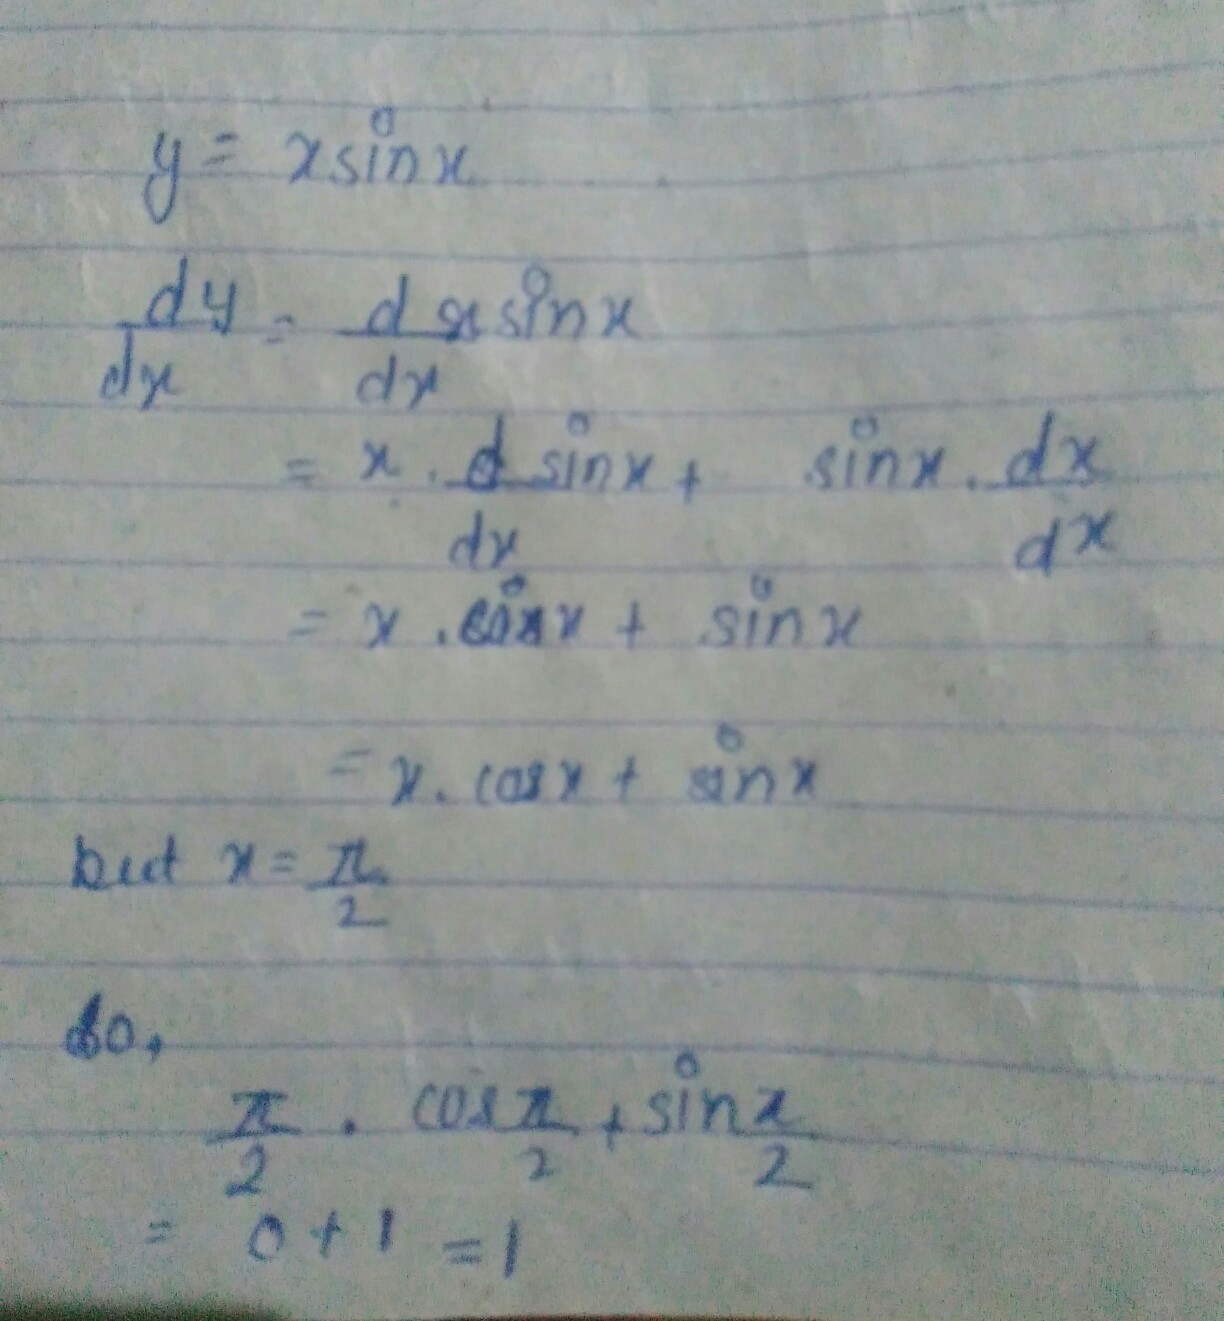 y = x sin x
dy/dx = d/dx x sin x
= x . d/dx sin x + sin x . dx/dx
= x . cos x + sin x
= x . cos x + sin x
but x = π/2
so,
π/2 . cos π/2 + sin π/2
= 0 + 1 = 1